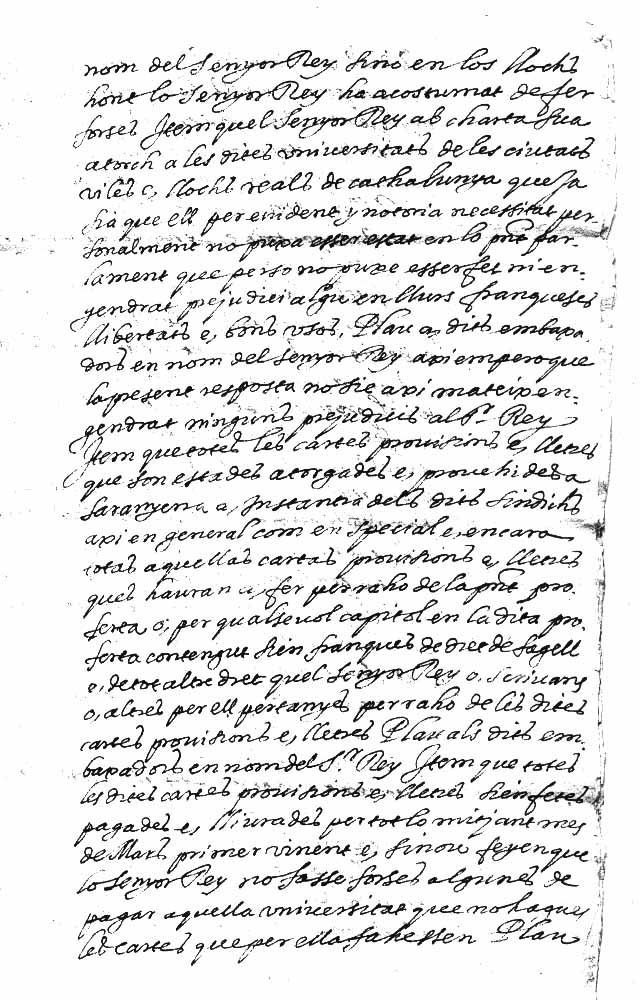 nom del Senyor Rey sino en los llochs
hont lo Senyor Rey ha acostumat de fer
forses Item quel Senyor Rey ab charta sua
atorch a les dites vniuersitats de les ciutats
viles e, llochs reals de cathalunya que ja
sia que ell per euident y notoria necessitat per
sonalment no puxa esser estat en lo pnt par
lament que perso no puxe esser fet ni en-
gendrat prejudici algu en llurs franqueses
llibertats e, bons vsos, Plau a, dits embaxa
dors en nom del Senyor Rey axi empero que
la present resposta no sie axi mateix en-
gendrat ninguns prejudicis al Sr. Rey
Item que totes les cartes prouisions e, lletres
que son estades atorgades e, prouehides a
saranyena a, Instantia dels dits sindichs
axi en general com en special e, encara
totas aquellas cartas prouisions e, lletres
ques hauran a, fer per raho de la pnt pro
ferta o, per qualseuol capitol en la dita pro
ferta contengut sien franques de dret de sagell
e, de tot altre dret quel Senyor Rey o, scriuans
o, altres per ell pertanyes per raho de les dites
cartes prouisions e, lletres Plau als dits em
baxadors en nom del Sr. Rey Item que totes
les dites cartes prouisions e, lletres sien fetes
pagades e, lliurades per tot lo mitjant mes
de Mars primer vinent e, sinou feyen que
lo Senyor Rey no fasse forses algunes de
pagar aquella vniuersitat que no hagues
les cartes que per ella fahessen Plau